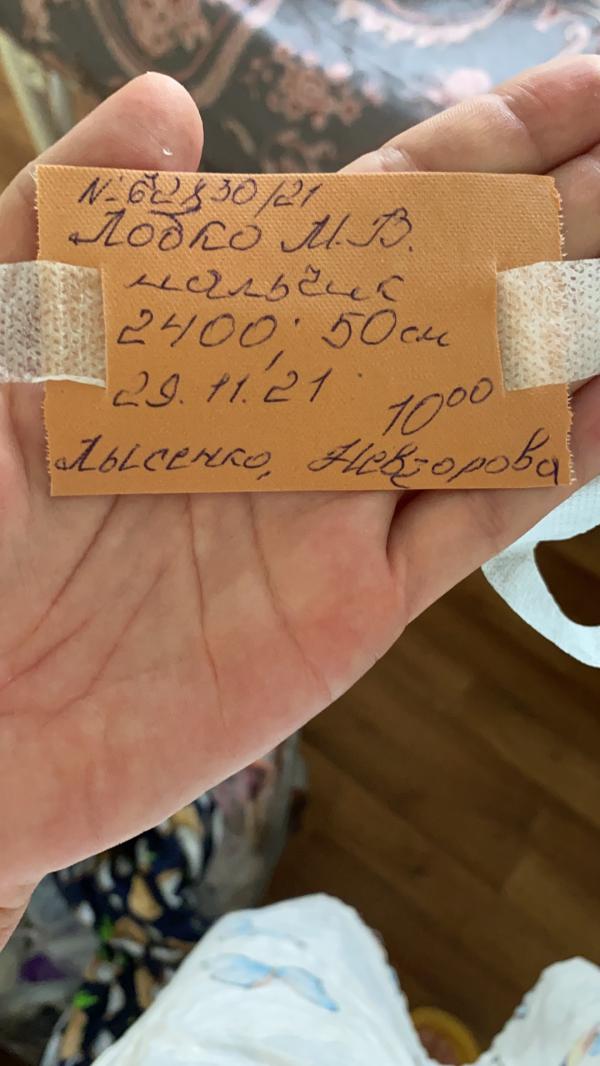 № 62830/21
Лобко М.В.
мальчик
2400, 50 см
29.11.21 10⁰⁰
Лысенко, Невзорова